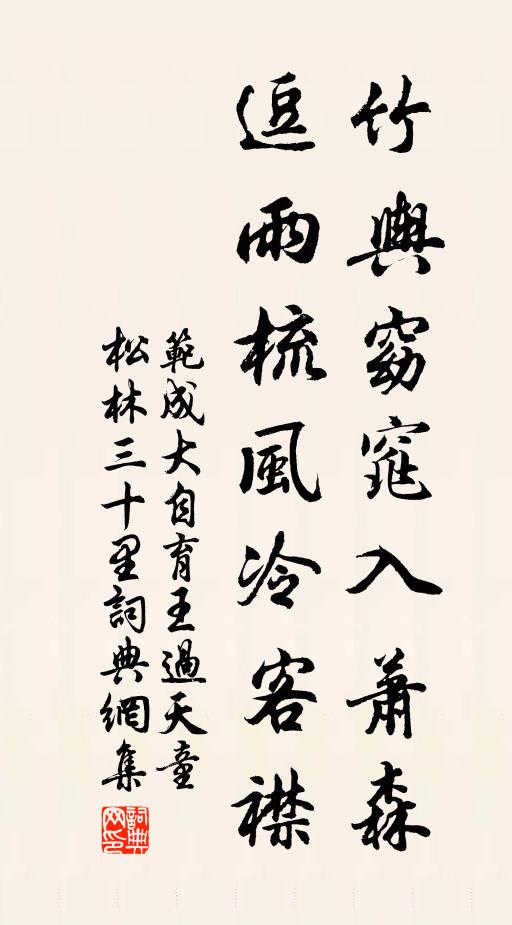 竹輿窈窕入蕭森
逗雨梳風冷客襟
範成大自育王過天童
松林三十里詞典網集
詞典網印